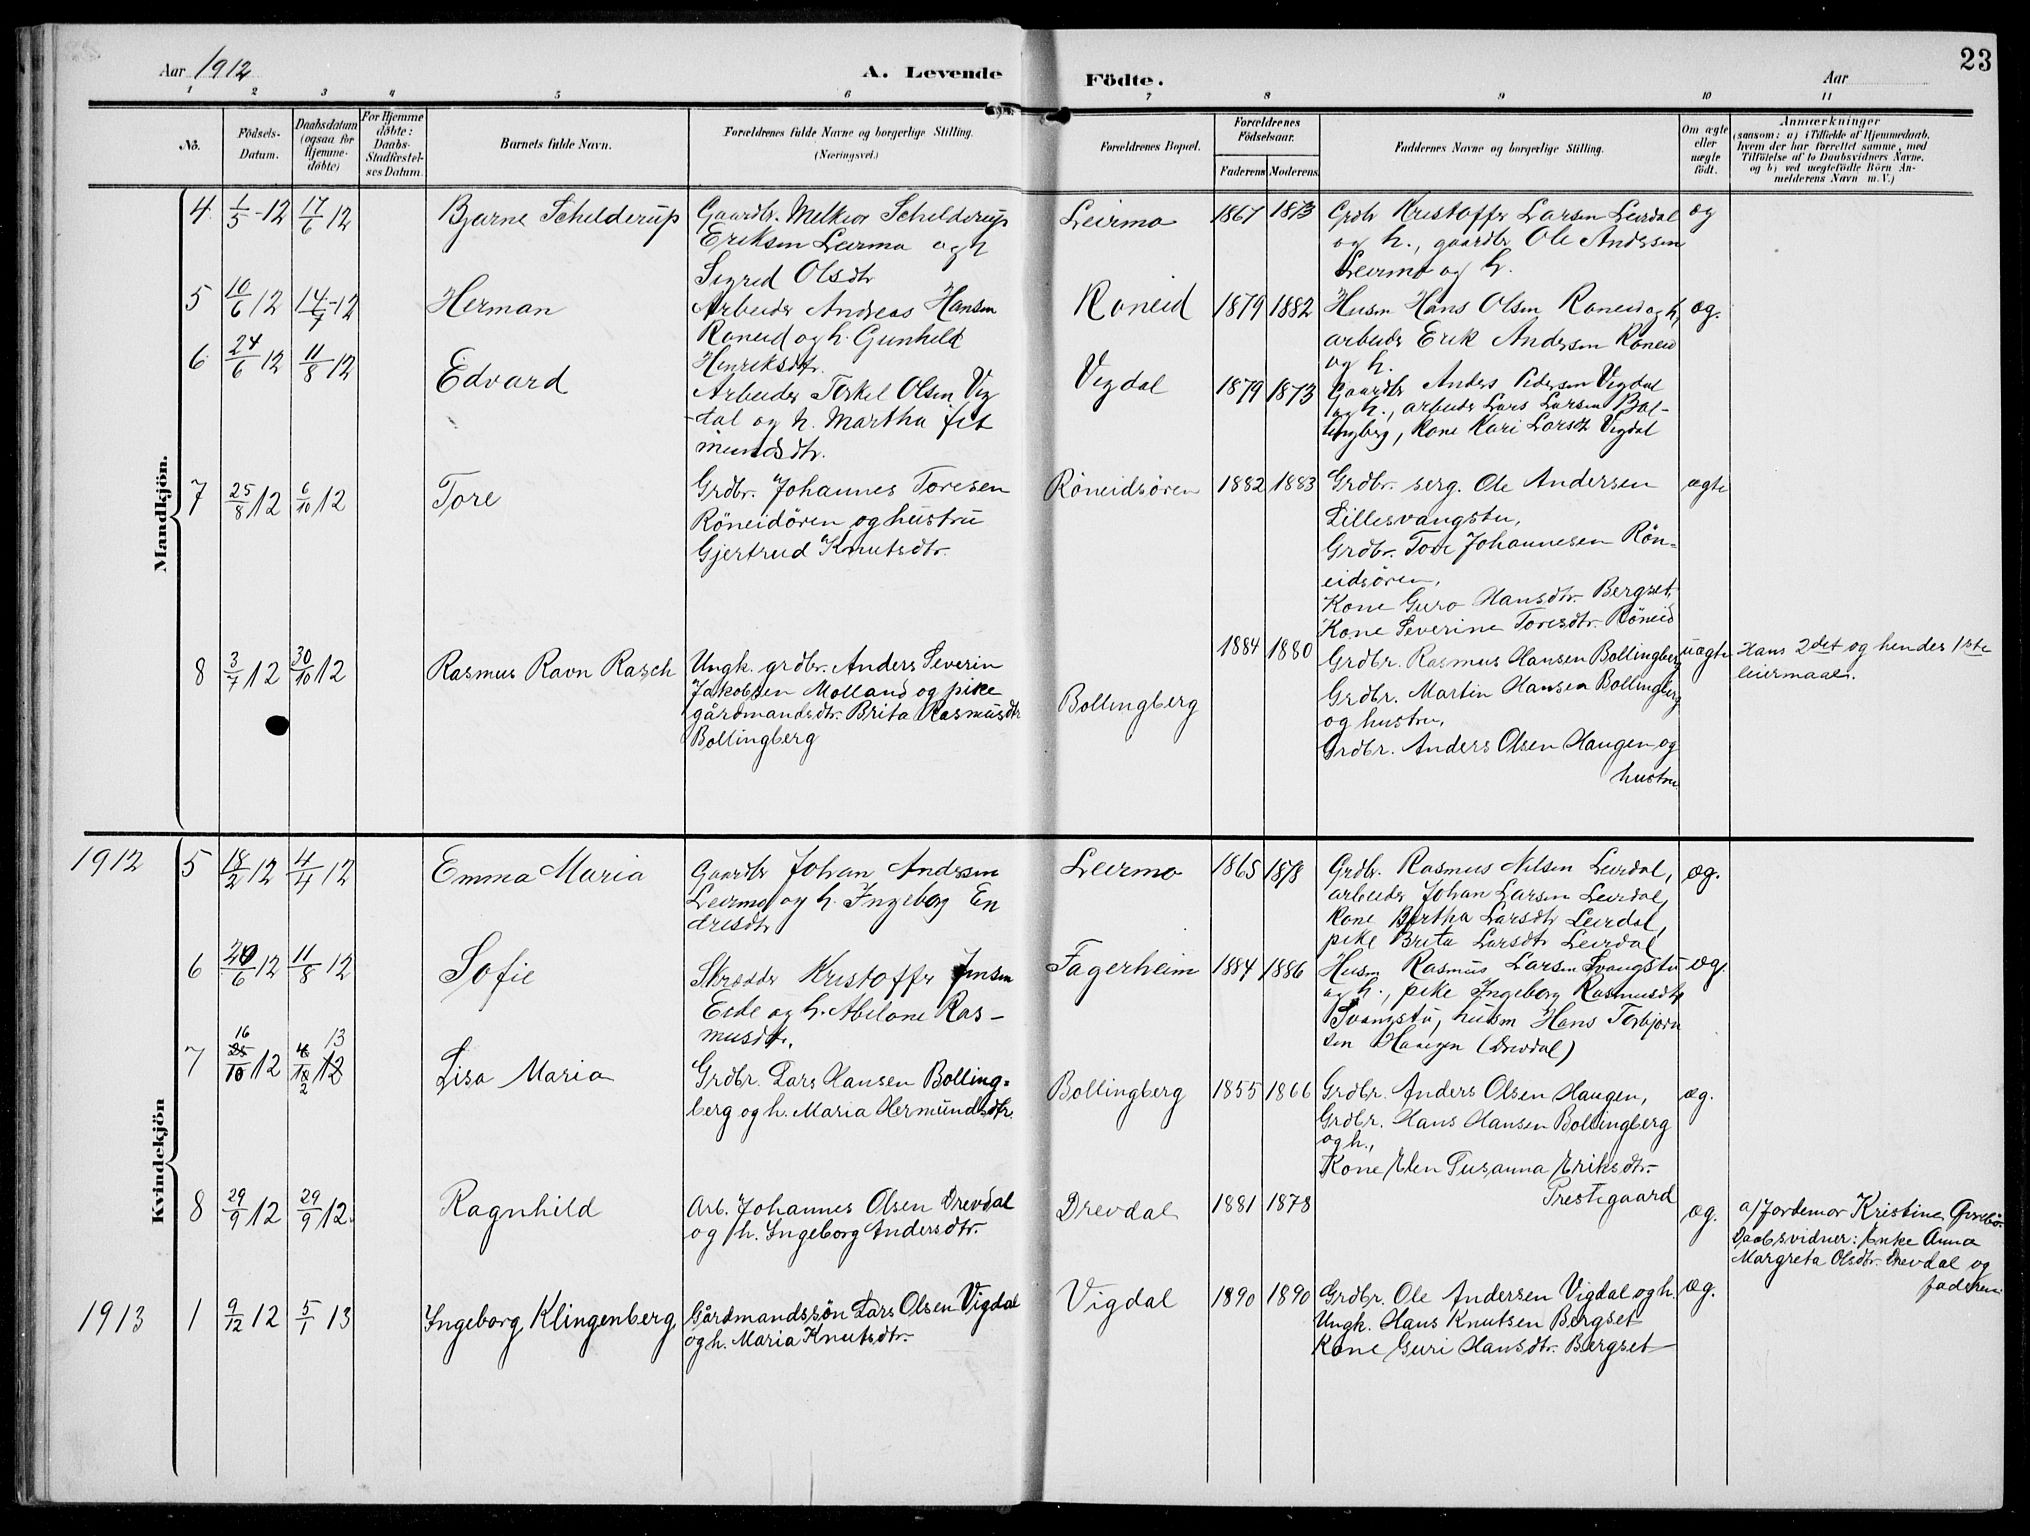 23
Aar 1912
A. Levende
Födte.
Aar
1 2 3 4 5 6 7 8 9 10 11
No.
Födsels-
Datum.
Daabsdatum
(ogsaa for
Hjemme-
döbte)
For Hjemme
döbte:
Daabs-
Stadfæstel-
ses Datum.
Barnets fulde Navn.
Forældrenes fulde Navne og borgerlige Stilling.
(Næringsvei.)
Forældrenes Bopæl.
Forældrenes
Födselsaar.
Faderens Moderens
Faddernes Navne og borgerlige Stilling.
Om ægte
eller
uægte
födt.
Anmærkninger
(saasom: a) i Tilfælde af Hjemmedaab,
hvem der har forrettet samme, med
Tilföielse af to Daabsvidners Navne.
og b) ved uegtefödte Börn An-
melderens Navn m. V.)
Mandkjön.
4 1/5-12 17/6 12 Bjarne Schelderup
Gaardbr. Melkior Schelderup
Eriksen Leirmo og h
Sigred Olsdtr
Leirmo 1867 1873
Grdbr Kristoffer Larsen Leirdal
og h., gaardbr Ole Andersen
Leirmo og h.
æg
5 10/6 12 14/7-12 Herman
Arbeider Andreas Hansen
Roneid og h. Gunhild
Henriksdtr.
Roneid 1879 1882
Husm Hans Olsen Roneid og h,
arbeider Erik Andersen Roneid
og h.
æg.
6 24/6 12 11/8 12 Edvard
Arbeider Torkel Olsen Vig
dal og h. Martha Jet
mundsdtr.
Vigdal 1879 1873
Gaardbr Anders Pedersen Vigdal
og h., arbeider Lars Larsen Bol-
lingberg, Kone Kari Larsdtr Vigdal
7 25/8 12 6/10 12 Tore
Grdbr. Johannes Toresen
Röneidören og hustru
Gjertrud Knutsdtr.
Röneidsören 1882 1883
Grdbr. serg. Ole Andersen
Lillesvangstu,
Grdbr. Tore Johannesen Rön-
eidsören,
Kone Guro Hansdtr. Bergset,
Kone Severine Toresdtr. Röneid
ægte
8 3/7 12 30/10 12 Rasmus Ravn Rasch
Ungk. grdbr. Anders Severin
Jakobsen Molland og pike
gårdmandsdtr. Brita Rasmusdtr
Bollingberg
Bollingberg 1884 1880
Grdbr. Rasmus Hansen Bollingberg
Grdbr. Martin Hansen Bollingberg
og hustru,
Grdbr. Anders Olsen Haugen og
hustru
uægte
Hans 2det og hendes 1ste
leiermaal.
Kvindekjön
1912 5 18/2 12 4/4 12 Emma Maria
Gaardbr Johan Andersen
Leirmo og h. Ingeborg En
dresdtr
Leirmo 1865 1878
Grdbr. Rasmus Nilsen Leirdal,
arbeider Johan Larsen Leirdal,
Kone Bertha Larsdtr Leirdal,
pike Brita Larsdtr Leirdal
æg.
6 20/6 12 11/8 12 Sofie
Skrædder Kristoffer Jensen
Eide og h. Abelone Ras-
musdtr.
Fagerheim 1884 1886
Husm Rasmus Larsen Svangstu
og h., pike Ingeborg Rasmusdtr
Svangstu, husm Hans Torbjørn
sen Haugen (Drevdal)
æg.
7 16 25/10 12 13 2 12 Lisa Maria
Grdbr. Lars Hansen Bolling-
berg og h. Maria Hermundsdtr.
Bollingberg 1855 1866
Grdbr. Anders Olsen Haugen,
Grdbr. Hans Hansen Bollingberg
og h.,
Kone Elen Susanna Eriksdtr.
Prestegaard
æg.
8 29/9 12 29/9 12. Ragnhild
Arb. Johannes Olsen Drevdal
og h. Ingeborg Andersdtr.
Drevdal 1881 1878
æg.
a/ Jordemor Kristine
Daabsvidner: Enke Anna
Margreta Olsdtr. Drevdal og
faderen.
1913 1 9/12 12 5/1 13 Ingeborg Klingenberg
Gårdmandssön Lars Olsen Vigdal
og h. Maria Knutsdtr.
Vigdal 1890 1890
Grdbr. Ole Andersen Vigdal og h.
Ungk. Hans Knutsen Bergset
Kone Guri Hansdtr. Bergset
æg.